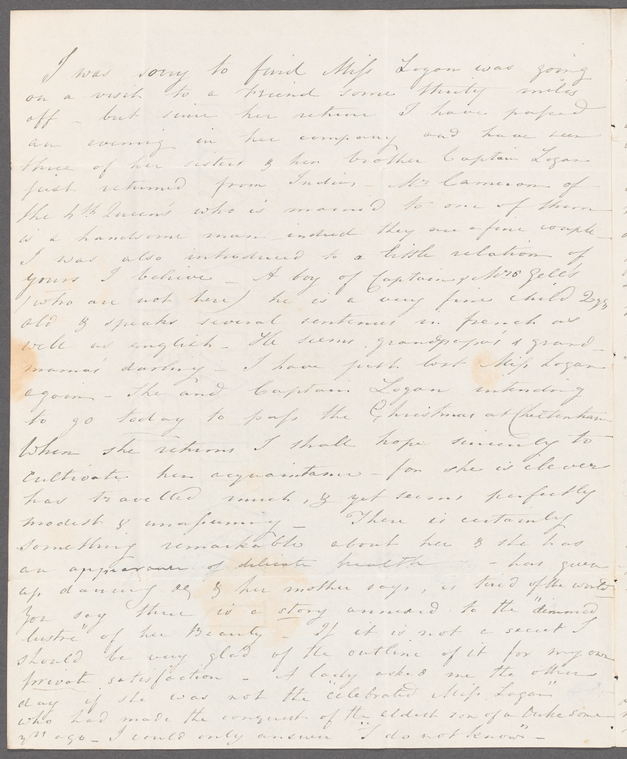 I was sorry to find Miss Logan was going
on a visit to a Friend some thirty miles
off - but since her return I have passed
an evening in her company and have seen
three of her sisters & her brother Captain Logan
just returned from Indies - Mr Cameron of
the 4th Queen's who is married to one of them
is a handsome man indeed they are a fine couple
I was also introduced to a little relation of
yours I believe - A boy of Captain & Mrs Gele's
(who are not here) he is a very fine child 2 yrs
old & speaks several sentences in french as
well as english - He seems grandpapa's & grand-
mama's darling - I have just lost Miss Logan
again - She and Captain Logan intending
to go today to pass the Christmas at Cheltenham
When she returns I shall hope sincerely to
cultivate her acquaintance - for she is clever
has travelled much, & yet seems perfectly
modest & unassuming - There is certainly
something remarkable about her & she has
an appearance of delicate health - has given
up dancing & her mother says, is tired of the world
You say there is a story annexed to the "dimmed
lustre" of her Beauty - If it is not a secret I
should be very glad of the outline of it for my own
private satisfaction - A lady asked me the other
day if she was not the celebrated Miss Logan
who had made the conquest of the eldest son of a Duke some
yrs ago - I could only answer "I do not know" -